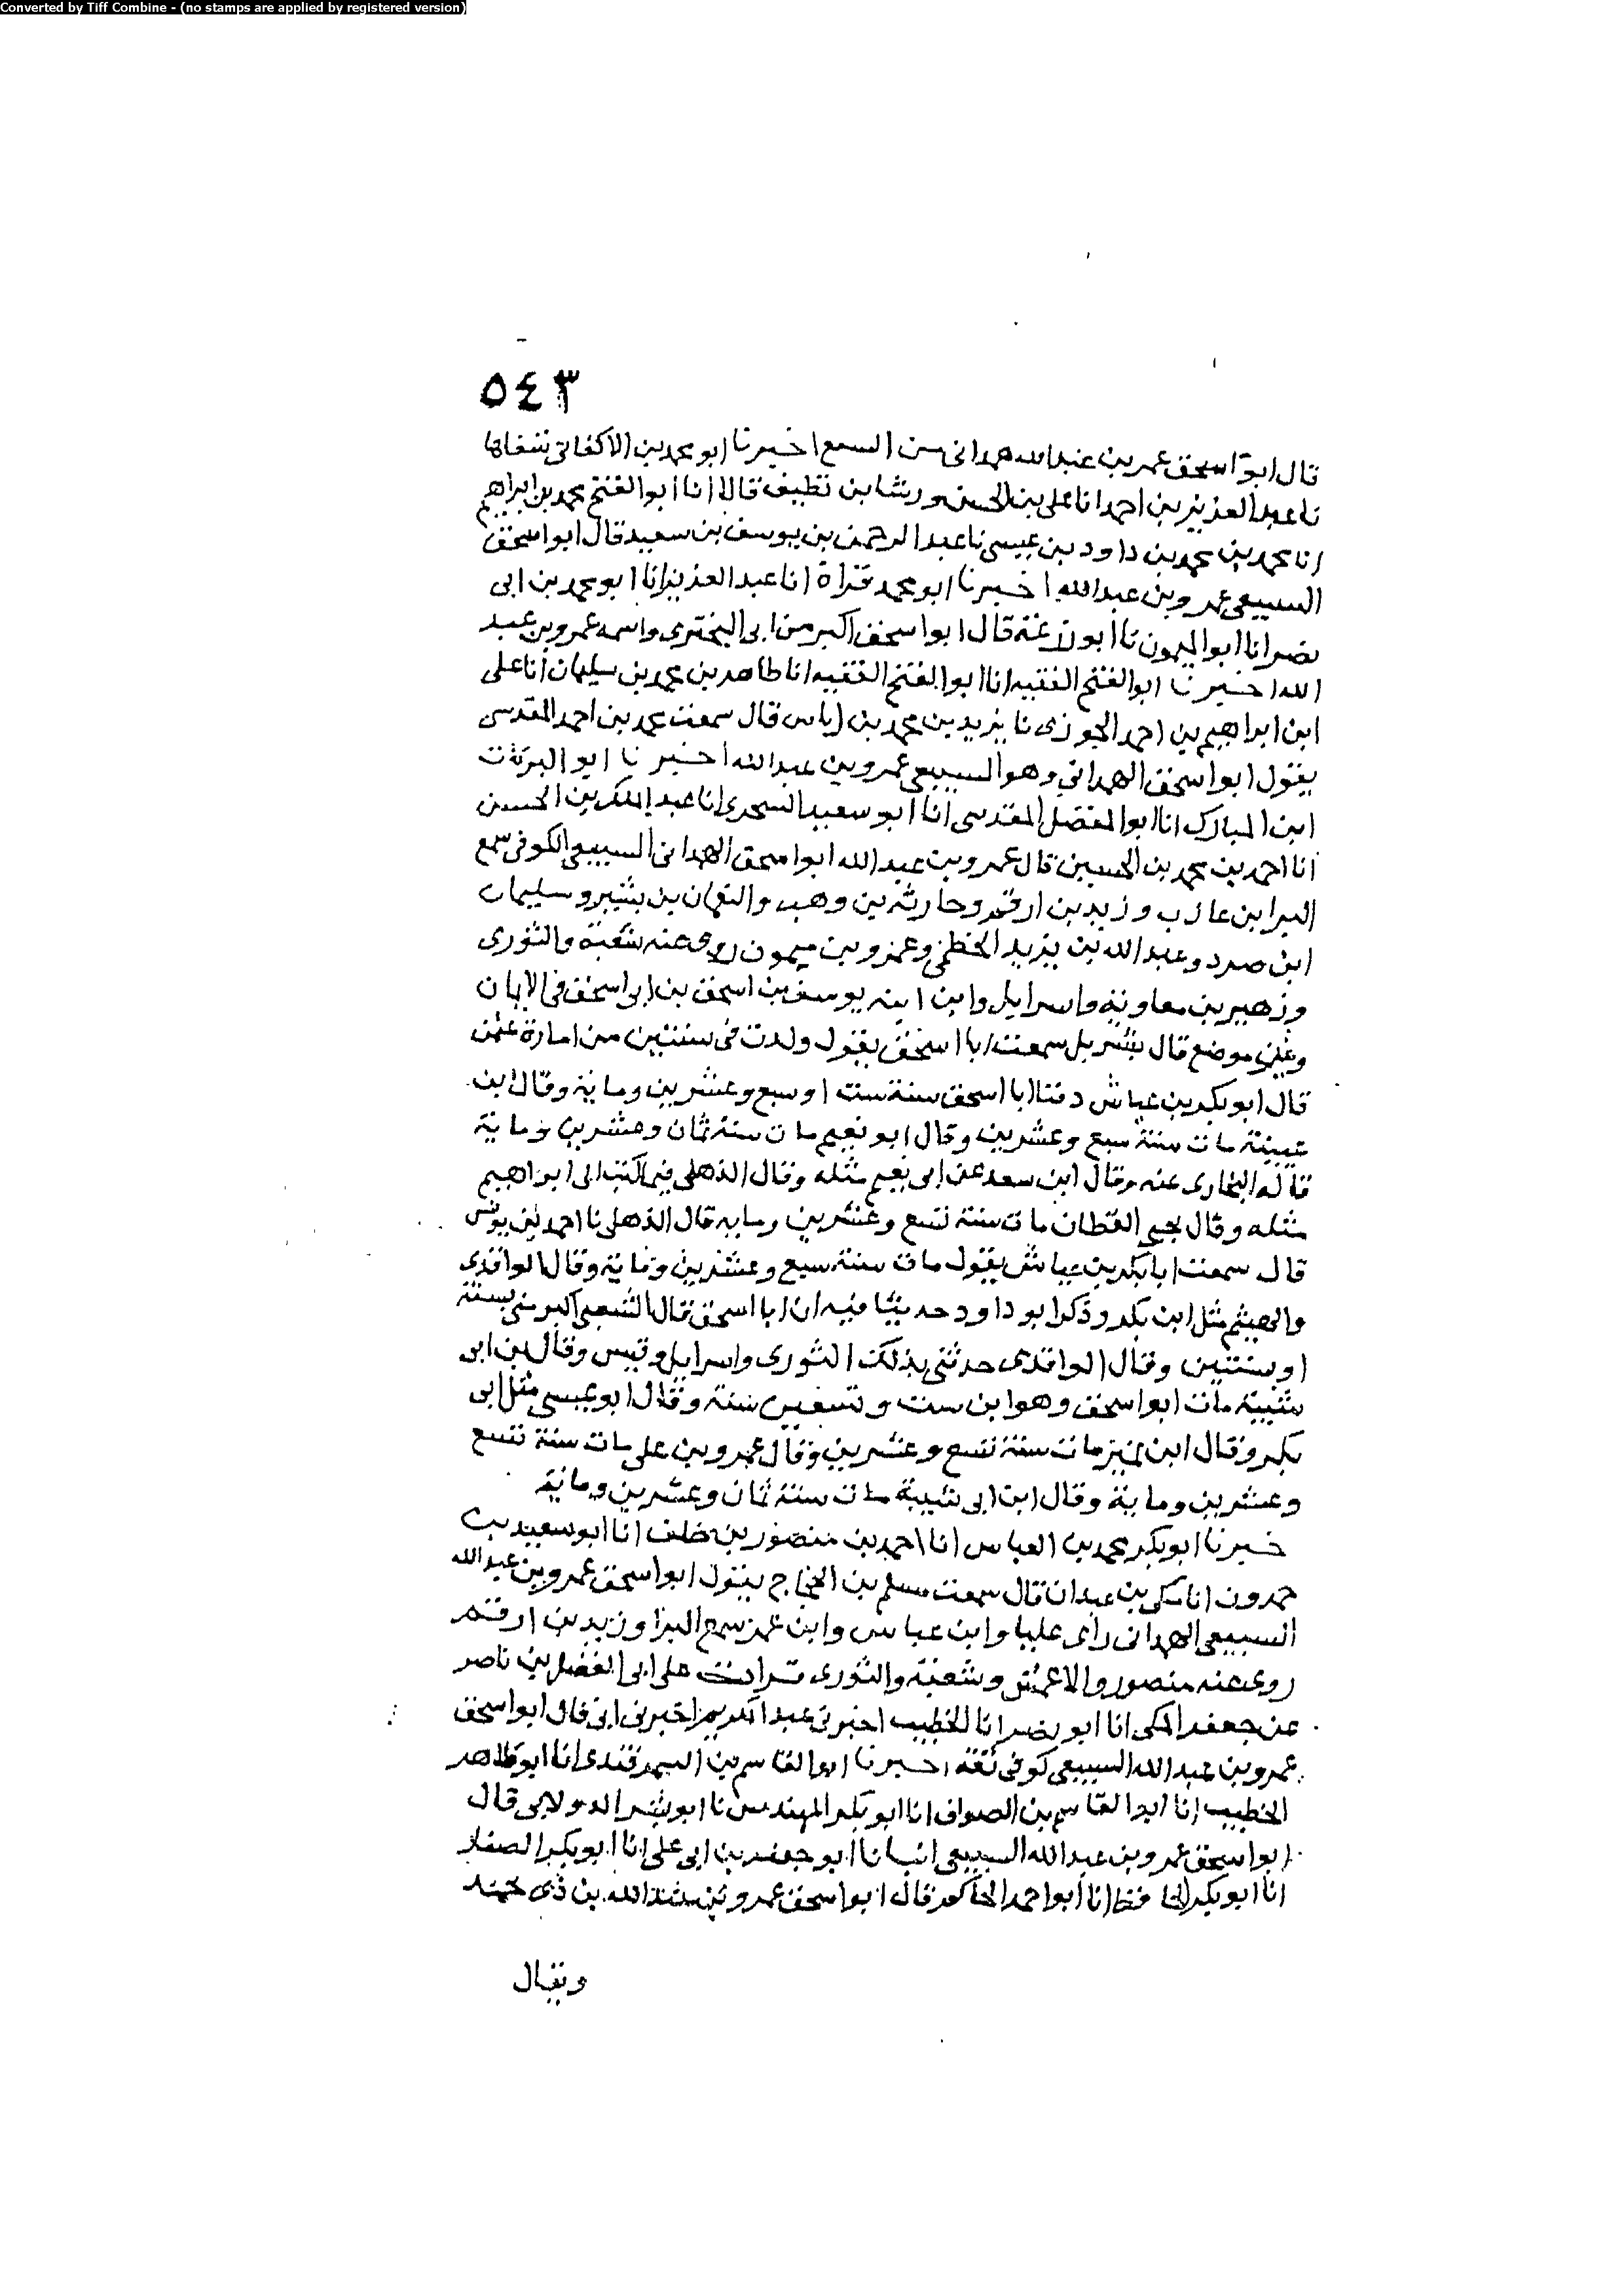 Converted by Tiff Combine - (no stamps are applied by registered version)
٥٤٣
قال ابو اسحق عمر بن عبد الله همدانى من السبع اخبرنا ابو محمد بن الاكفانى شفاها
نا عبد العزيز بن احمد انا على بن الحسن ورشا بن نظيف قالا انا ابو الفتح محمد بن ابراهيم
انا محمد بن محمد بن داود بن عيسى نا عبد الرحمن بن يوسف بن سعيد قال ابو اسحق
السبيعى عمرو بن عبد الله اخبرنا ابو محمد قراة انا عبد العزيز انا ابو محمد بن ابى
نصر انا ابو الميمون نا ابو زرعة قال ابو اسحق اكبر من ابى البخترى واسمه عمرو بن عبد
الله اخبرنا ابو الفتح الفقيه انا ابو الفتح الفقيه انا طاهر بن محمد بن سليمان انا على
ابن ابراهيم بن احمد الجوزى نا يزيد بن محمد بن اياس قال سمعت محمد بن احمد المقدسى
يقول ابو اسحق الهمدانى وهو السبيعى عمرو بن عبد الله اخبرنا ابو البركات
ابن المبارك انا ابو الفضل المقدسى انا ابو سعيد السجزى انا عبد الملك بن الحسن
انا احمد بن محمد بن الحسين قال عمرو بن عبد الله ابو اسحق الهمدانى السبيعى الكوفى سمع
البرا بن عازب وزيد بن ارقم وحارثة بن وهب والنعمان بن بشير وسليمان
ابن صرد وعبد الله بن يزيد الخطمى وعمرو بن ميمون روى عنه شعبة والثورى
وزهير بن معاوية واسرايل وابن ابنه يوسف بن اسحق بن ابى اسحق فى الايمان
وغير موضع قال شريك سمعت ابا اسحق يقول ولدت فى سنتين من امارة عثمن
قال ابو بكر بن عياش دفنا ابا اسحق سنة ست او سبع وعشرين وماية وقال ابن
عيينة مات سنة سبع وعشرين وقال ابو نعيم مات سنة ثمان وعشرين وماية
قاله البخارى عنه وقال ابن سعد عن ابى نعيم مثله وقال الذهلى فيما كتب الى ابو ابراهيم
مثله وقال يحيى القطان مات سنة تسع وعشرين وماية قال الذهلى نا احمد بن يونس
قال سمعت ابا بكر بن عياش يقول مات سنة سبع وعشرين وماية وقال الواقدى
والهيثم مثل ابن بكر وذكر ابو داود حديثا فيه ان ابا اسحق قال الشعبى اكبر منى بسنة
او بسنتين وقال الواقدى حدثنى بذلك الثورى واسرايل وقيس وقال ابن ابى
شيبة مات ابو اسحق وهو ابن ست وتسعين سنة وقال ابو عيسى مثل ابى
بكر وقال ابن نمير مات سنة تسع وعشرين وقال عمرو بن على مات سنة تسع
وعشرين وماية وقال ابن ابى شيبة مات سنة ثمان وعشرين وماية
خبرنا ابو بكر محمد بن العباس انا احمد بن منصور بن خلف انا ابو سعيد بن
حمدون انا مكى بن عبدان قال سمعت مسلم بن الحجاج يقول ابو اسحق عمرو بن عبد الله
السبيعى الهمدانى راى عليا وابن عباس وابن عمر سمع البرا وزيد بن ارقم
روى عنه منصور والاعمش وشعبة والثورى قرات على ابى الفضل بن ناصر
عن جعفر المكى انا ابو نصر انا الخطيب اخبرنى عبد الكريم اخبرنى ابى قال ابو اسحق
عمرو بن عبد الله السبيعى كوفى ثقة اخبرنا ابو القاسم بن السمرقندى انا ابو طاهر
الخطيب انا ابو القاسم بن الصواف انا ابو بكر المهندس نا ابو بشر الدولابى قال
ابو اسحق عمرو بن عبد الله السبيعى انبانا ابو جعفر بن ابى على انا ابو بكر الصفار
انا ابو بكر الحافظ انا ابو احمد الحاكم قال ابو اسحق عمرو بن عبد الله بن ذى
ويقال